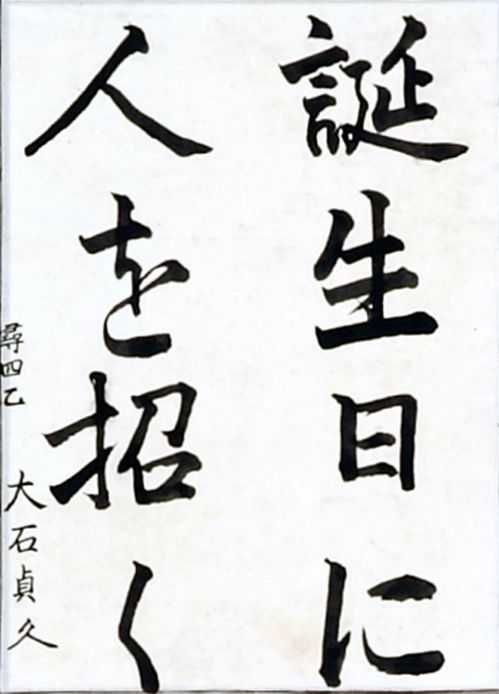 誕生日に
人を招く
尋四乙 大石貞久